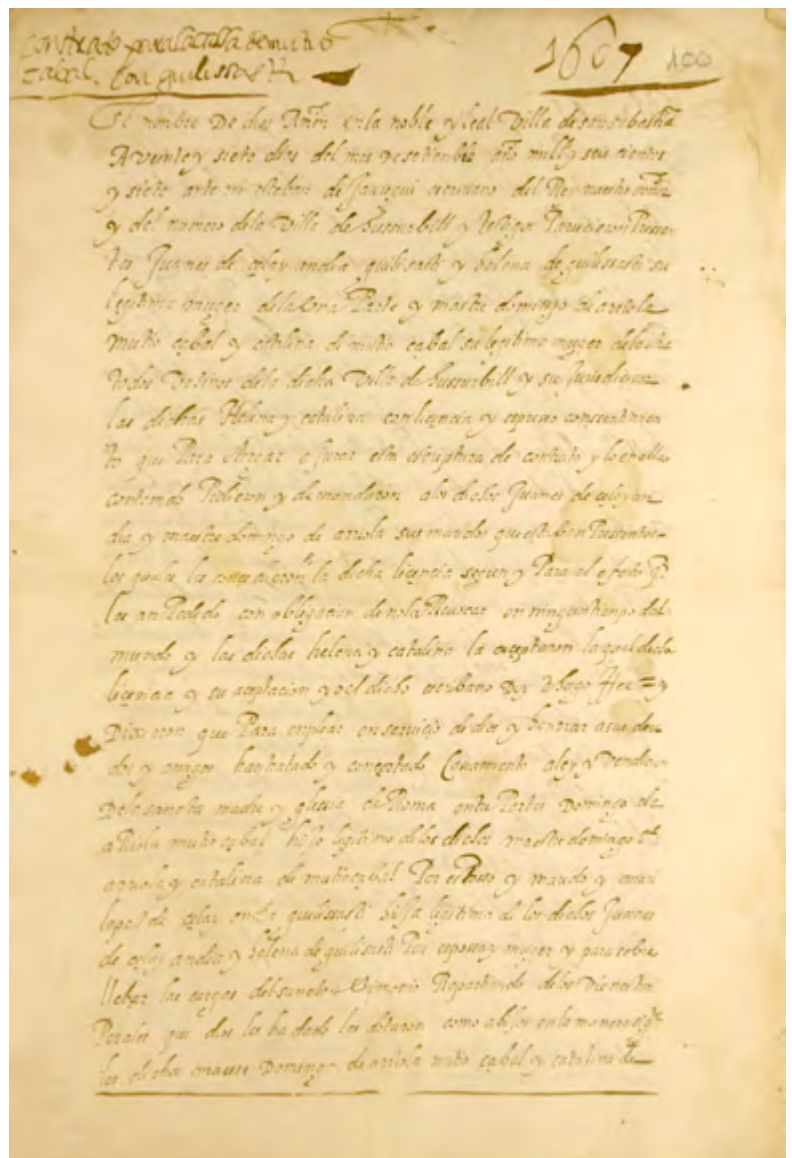 contrato para la casa de mutio
cabal. con quilissasti
1607 100
En nombre De dios Amen en la noble y leal Villa de
A veynte y siete dias del mes De setienbre año mill y seis cientos
y siete ante mi esteban de Jauregui escrivano del Rey nuestro señor
y del numero de la Villa de Ussurbill y testigos Parecieron Presen
tes Juanes de celay andia quilisasti y helena de quilissasti su
legitima muger de la Una Parte y mastre domingo de arriola
mutio cabal y catalina de mutio cabal su legitima muger de la otra
todos Vezinos de la dicha Villa de Ussurbill y su Jurisdicion
las dichas Helena y catalina con licencia y espreso consentimien
to que Para otorgar e jurar esta escriptura de contrato y lo en ella
contenido Pidieron y demandaron a los dichos Juanes de celay an
dia y maestre domingo de arriola sus maridos que estaban Presentes
los quales les concedieron la dicha licencia segun y Para al efeto q
les an Pedido con obligacion de no la Revocar en ningun tiempo del
mundo y las dichas helena y catalina la aceptaron la qual dicha
licencia y su aceptacion yo el dicho escribano Doy
Dixeron que Para enplear en servicio de dios y honrrar a sus deu
dos y amigos han tratado y concertado Casamiento a ley y Bendicion
De la sancta madre yglesia de Roma entre Partes Domingo de
aRiola mutio cabal hijo legitimo de los dichos maestre domingo de
arriola y catalina de mutio cabal Por esPoso y marido y mari
lopez de celay andia quilissasti hija legitima de los dichos Juanes
de celay andia y helena de quilisasti Por esposa y muger y para sobre
llebar las cargas del sancto Repartiendo de los Vienes tem
Porales que dios les ha dado les dotaron como a hijos en la manera sigte
los dichos maestre Domingo de arriola mutio cabal y catalina de